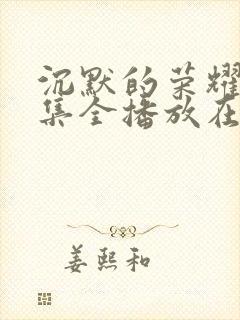 沉默的荣耀
集全播放在
姜熙和